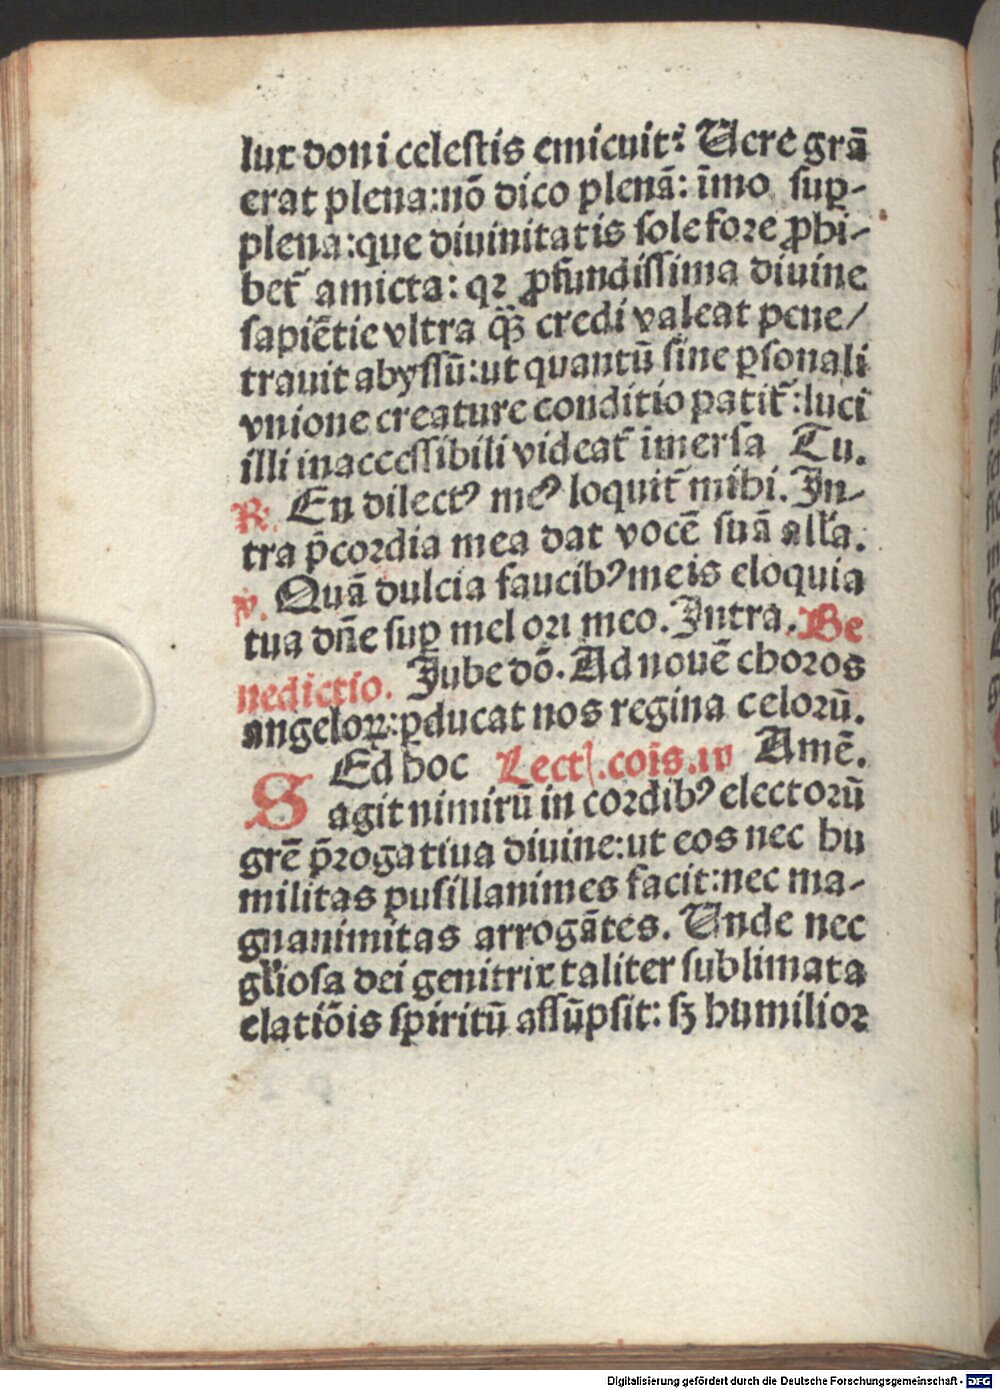 lux doni celestis emicuit: Uere grã
erat plena: nõ dico plenã: ĩmo suꝑ-
plena: que diuinitatis sole fore ꝓhi-
bet̃ amicta: qꝛ ꝓfundissima diuine
sapiẽtie vltra q̃ꝫ credi valeat pene/
trauit abyssũ: ut quantũ sine ꝑsonali
vnione creature conditio patit̃: luci
illi inaccessibili videat̃ ĩmersa Tu.
℟. En dilectꝰ meꝰ loquit̃ mihi. In-
tra p̃cordia mea dat vocẽ suã alla.
℣. Quã dulcia faucibꝰ meis eloquia
tua dñe suꝑ mel ori meo. Intra. Be
nedictio. Jube dõ. Ad nouẽ choros
angeloꝝ: ꝑducat nos regina celoꝛũ.
SEd hoc Lectꝭ. cõis. iv Amẽ.
agit nimirũ in cordibꝰ electorũ
grẽ p̃rogatiua diuine: ut eos nec hu
militas pusillanimes facit: nec ma-
gnanimitas arrogãtes. Unde nec
gl̃iosa dei genitrix taliter sublimata
elatiõis spiritũ assũpsit: sꝫ humilior
Digitalisierung gefördert durch die Deutsche Forschungsgemeinschaft - DFG